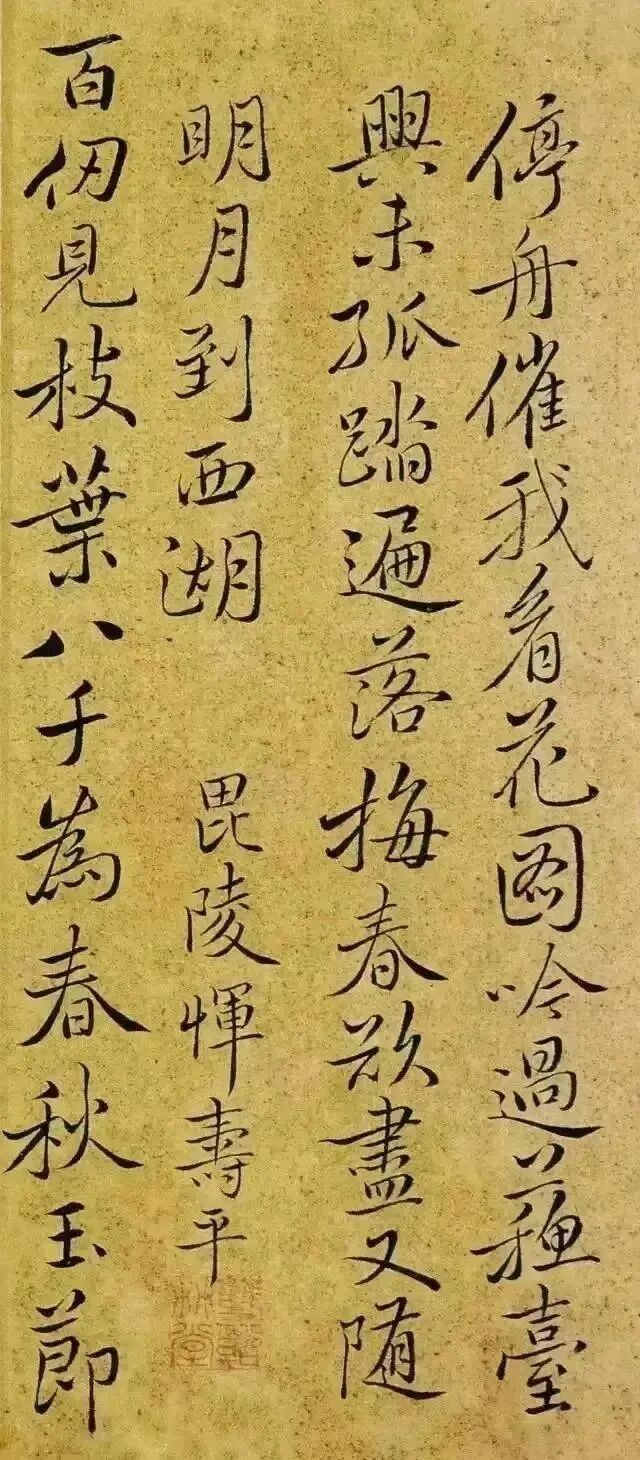 停舟催我看花圖吟過蘇臺
興未孤踏遍落梅春欲盡又隨
明月到西湖
毘陵惲壽平
百仞見枝葉八千為春秋玉節